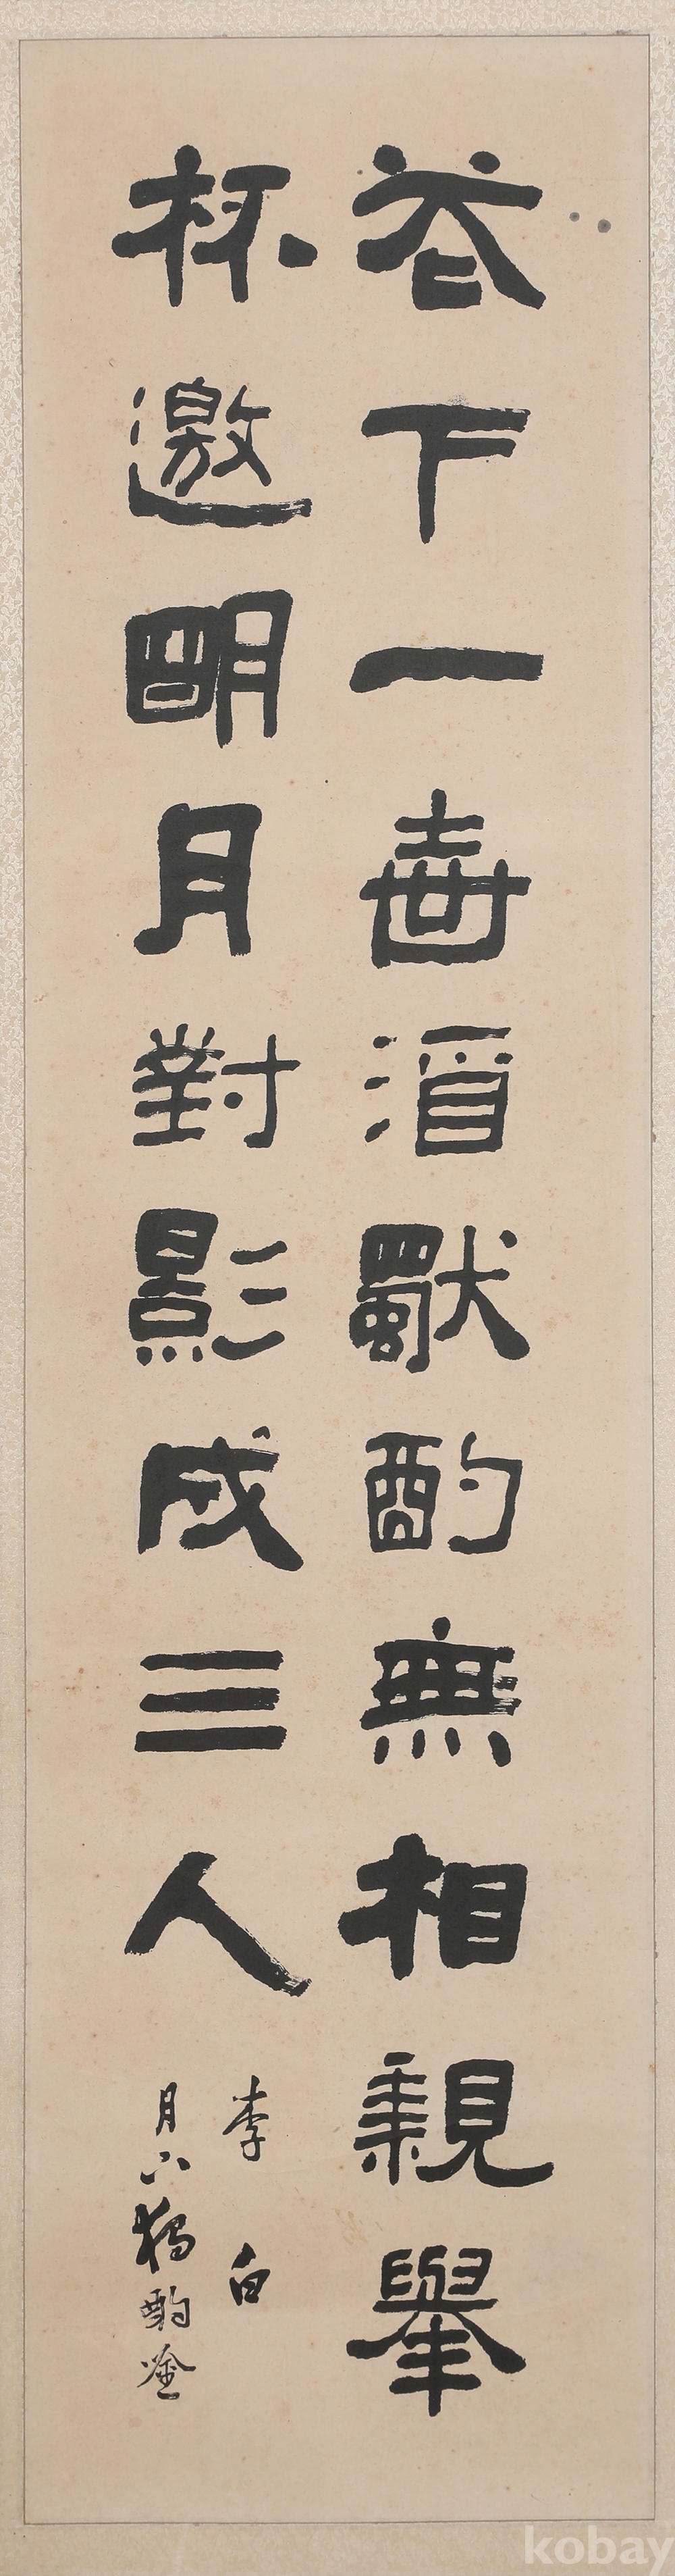 花下一壺酒獨酌無相親舉
杯邀明月對影成三人
李白
月下獨酌唫
kobay